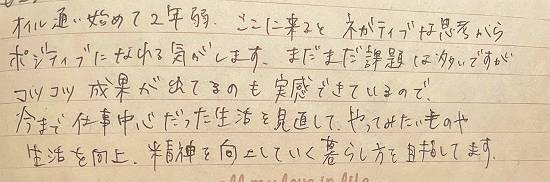 オイル通い始めて2年弱. ここに来ると ネガティブな思考から
ポジティブになれる気がします. まだまだ課題は多いですが
コツコツ 成果が出てるのも 実感できているので、
今まで 仕事中心だった生活を見直して、やってみたいものや
生活を向上、精神を向上していく暮らし方を目指してます.